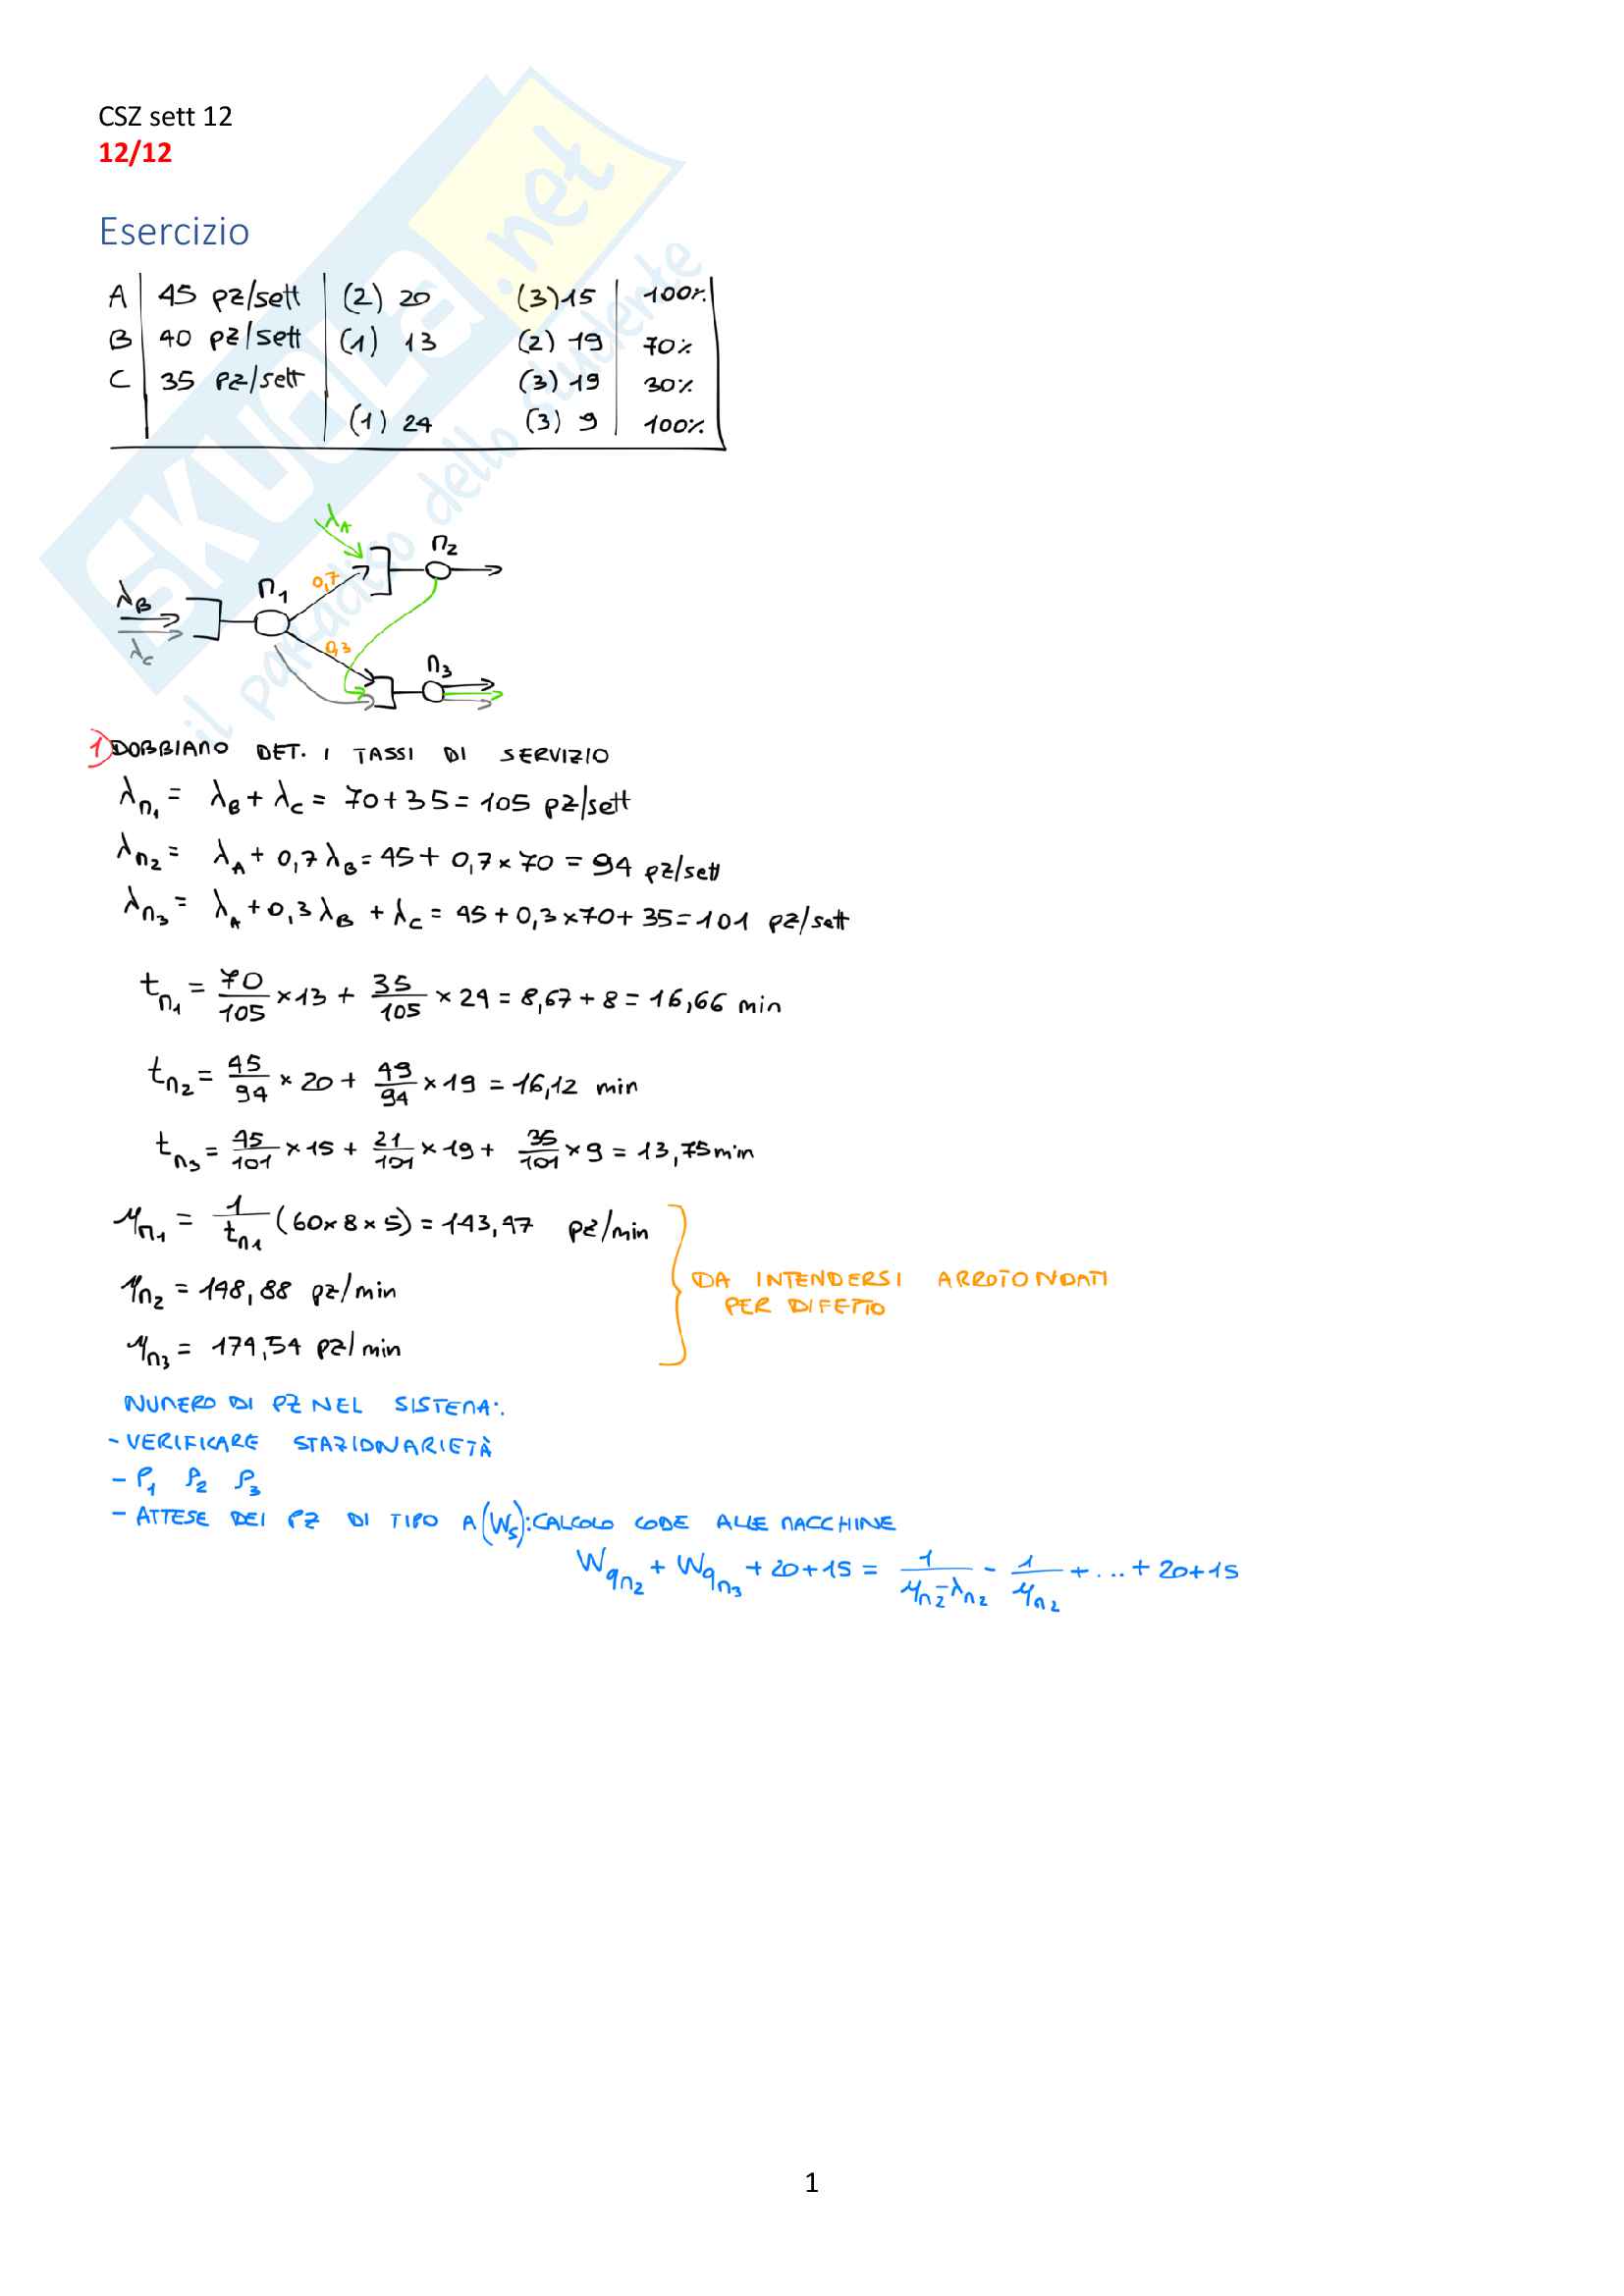 CSZ sett 12
12/12
Esercizio
A 45 pz/sett (2) 20 (3) 15 100%
B 40 pz/sett (1) 13 (2) 19 70%
C 35 pz/sett (3) 19 30%
(1) 24 (3) 9 100%
SKUOLA.net
il paradiso dello studente
λA
M2
0,7
λB
M1
λC
0,3
M3
1) DOBBIAMO DET. I TASSI DI SERVIZIO
λM1 = λB + λC = 70+35 = 105 pz/sett
λM2 = λA + 0,7 λB = 45 + 0,7 × 70 = 94 pz/sett
λM3 = λA + 0,3 λB + λC = 45 + 0,3 × 70 + 35 = 101 pz/sett
tM1 = 70/105 × 13 + 35/105 × 24 = 8,67 + 8 = 16,66 min
tM2 = 45/94 × 20 + 49/94 × 19 = 16,12 min
tM3 = 45/101 × 15 + 21/101 × 19 + 35/101 × 9 = 13,75 min
μM1 = 1/tM1 (60 × 8 × 5) = 143,47 pz/min
μM2 = 148,88 pz/min
μM3 = 174,54 pz/min
DA INTENDERSI ARROTONDATI
PER DIFETTO
NUMERO DI PZ NEL SISTEMA:
- VERIFICARE STAZIONARIETÀ
- ρ1 ρ2 ρ3
- ATTESE DEI PZ DI TIPO A (Ws): CALCOLO CODE ALLE MACCHINE
WqM2 + WqM3 + 20 + 15 = 1/(μM2 - λM2) - 1/μM2 + ... + 20 + 15
1